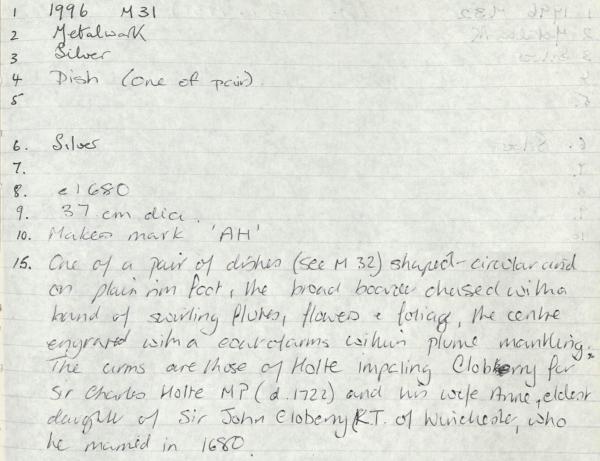 1 1996 M31
2 Metalwork
3 Silver
4 Dish (one of pair)
5
6. Silver
7.
8. c1680
9. 37 cm dia.
10. Makers mark 'AH'
15. One of a pair of dishes (see M 32) shaped-circular and
on plain rim foot, the broad boarder chased with a
band of swirling flutes, flowers & foliage, the centre
engraved with a coat of arms within plume mantling.
The arms are those of Holte impaling Clobberry for
Sir Charles Holte MP (d.1722) and his wife Anne, eldest
daughter of Sir John Cloberry K.T. of Winchester, who
he married in 1680.